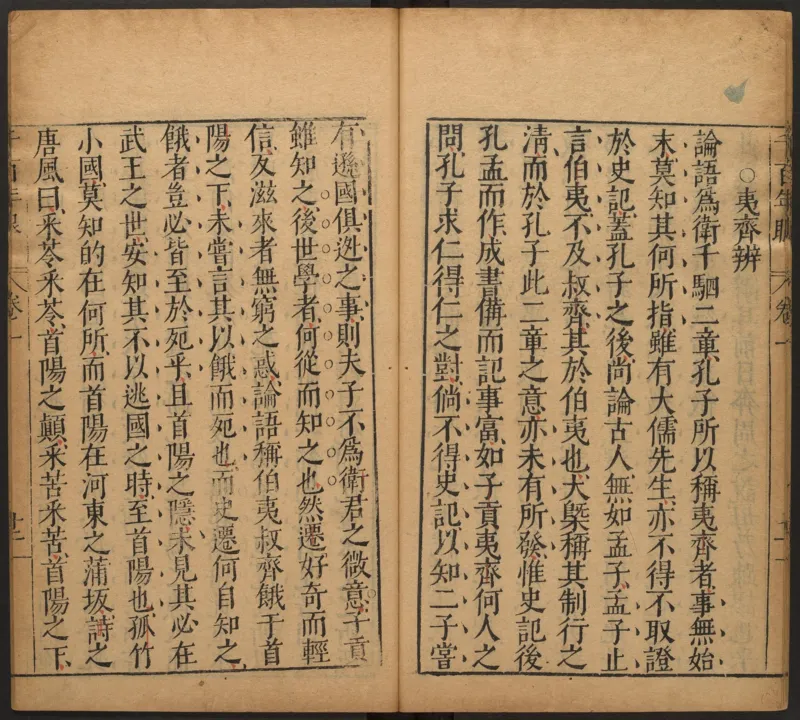 ○夷齊辨
論語爲衛千駟二章孔子所以稱夷齊者事無始
末莫知其何所指雖有大儒先生亦不得不取證
於史記蓋孔子之後尚論古人無如孟子孟子止
言伯夷不及叔齊其於伯夷也大槩稱其制行之
淸而於孔子此二章之意亦未有所發惟史記後
孔孟而作成書備而記事富如子貢夷齊何人之
問孔子求仁得仁之對倘不得史記以知二子嘗
有遜國俱迯之事則夫子不爲衛君之微意子貢
雖知之後世學者何從而知之也然遷好奇而輕
信反滋來者無窮之惑論語稱伯夷叔齊餓于首
陽之下未嘗言其以餓而死也而史遷何自知之
餓者豈必皆至於死乎且首陽之隱未見其必在
武王之世安知其不以逃國之時至首陽也孤竹
小國莫知的在何所而首陽在河東之蒲坂詩之
唐風曰采苓采苓首陽之顛采苦采苦首陽之下
卷一